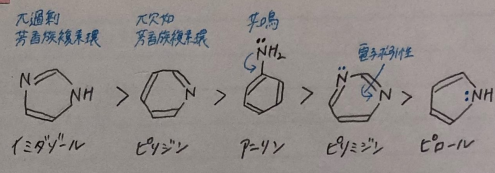 π過剰
芳香族複素環
π欠如
芳香族複素環
共鳴
電子求引性
N
NH
>
N
>
NH₂
>
N
N
>
:NH
イミダゾール
ピリジン
アニリン
ピリミジン
ピロール